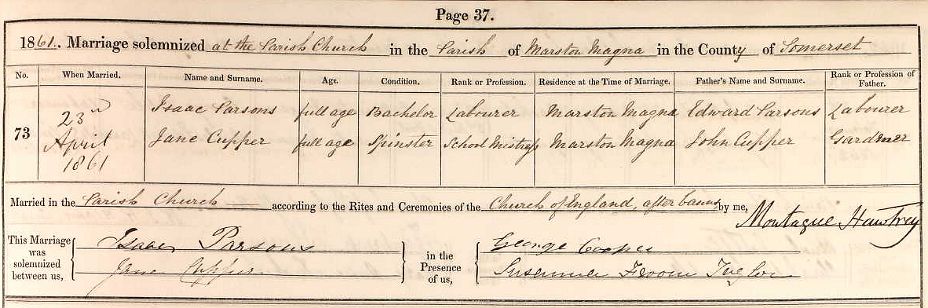 Page 37.
1861. Marriage solemnized at the Parish Church in the Parish of Marston Magna in the County of Somerset
No. When Married. Name and Surname. Age. Condition. Rank or Profession. Residence at the Time of Marriage. Father's Name and Surname. Rank or Profession of Father.
73 23rd April 1861 Isaac Parsons full age Bachelor Labourer Marston Magna Edward Parsons Labourer
Jane Cupper full age Spinster School Mistress Marston Magna John Cupper Gardner
Married in the Parish Church according to the Rites and Ceremonies of the Church of England, after banns by me, Montague Hawtrey
This Marriage was solemnized between us, Isaac Parsons in the Presence of us, George
Jane Cupper Susanna